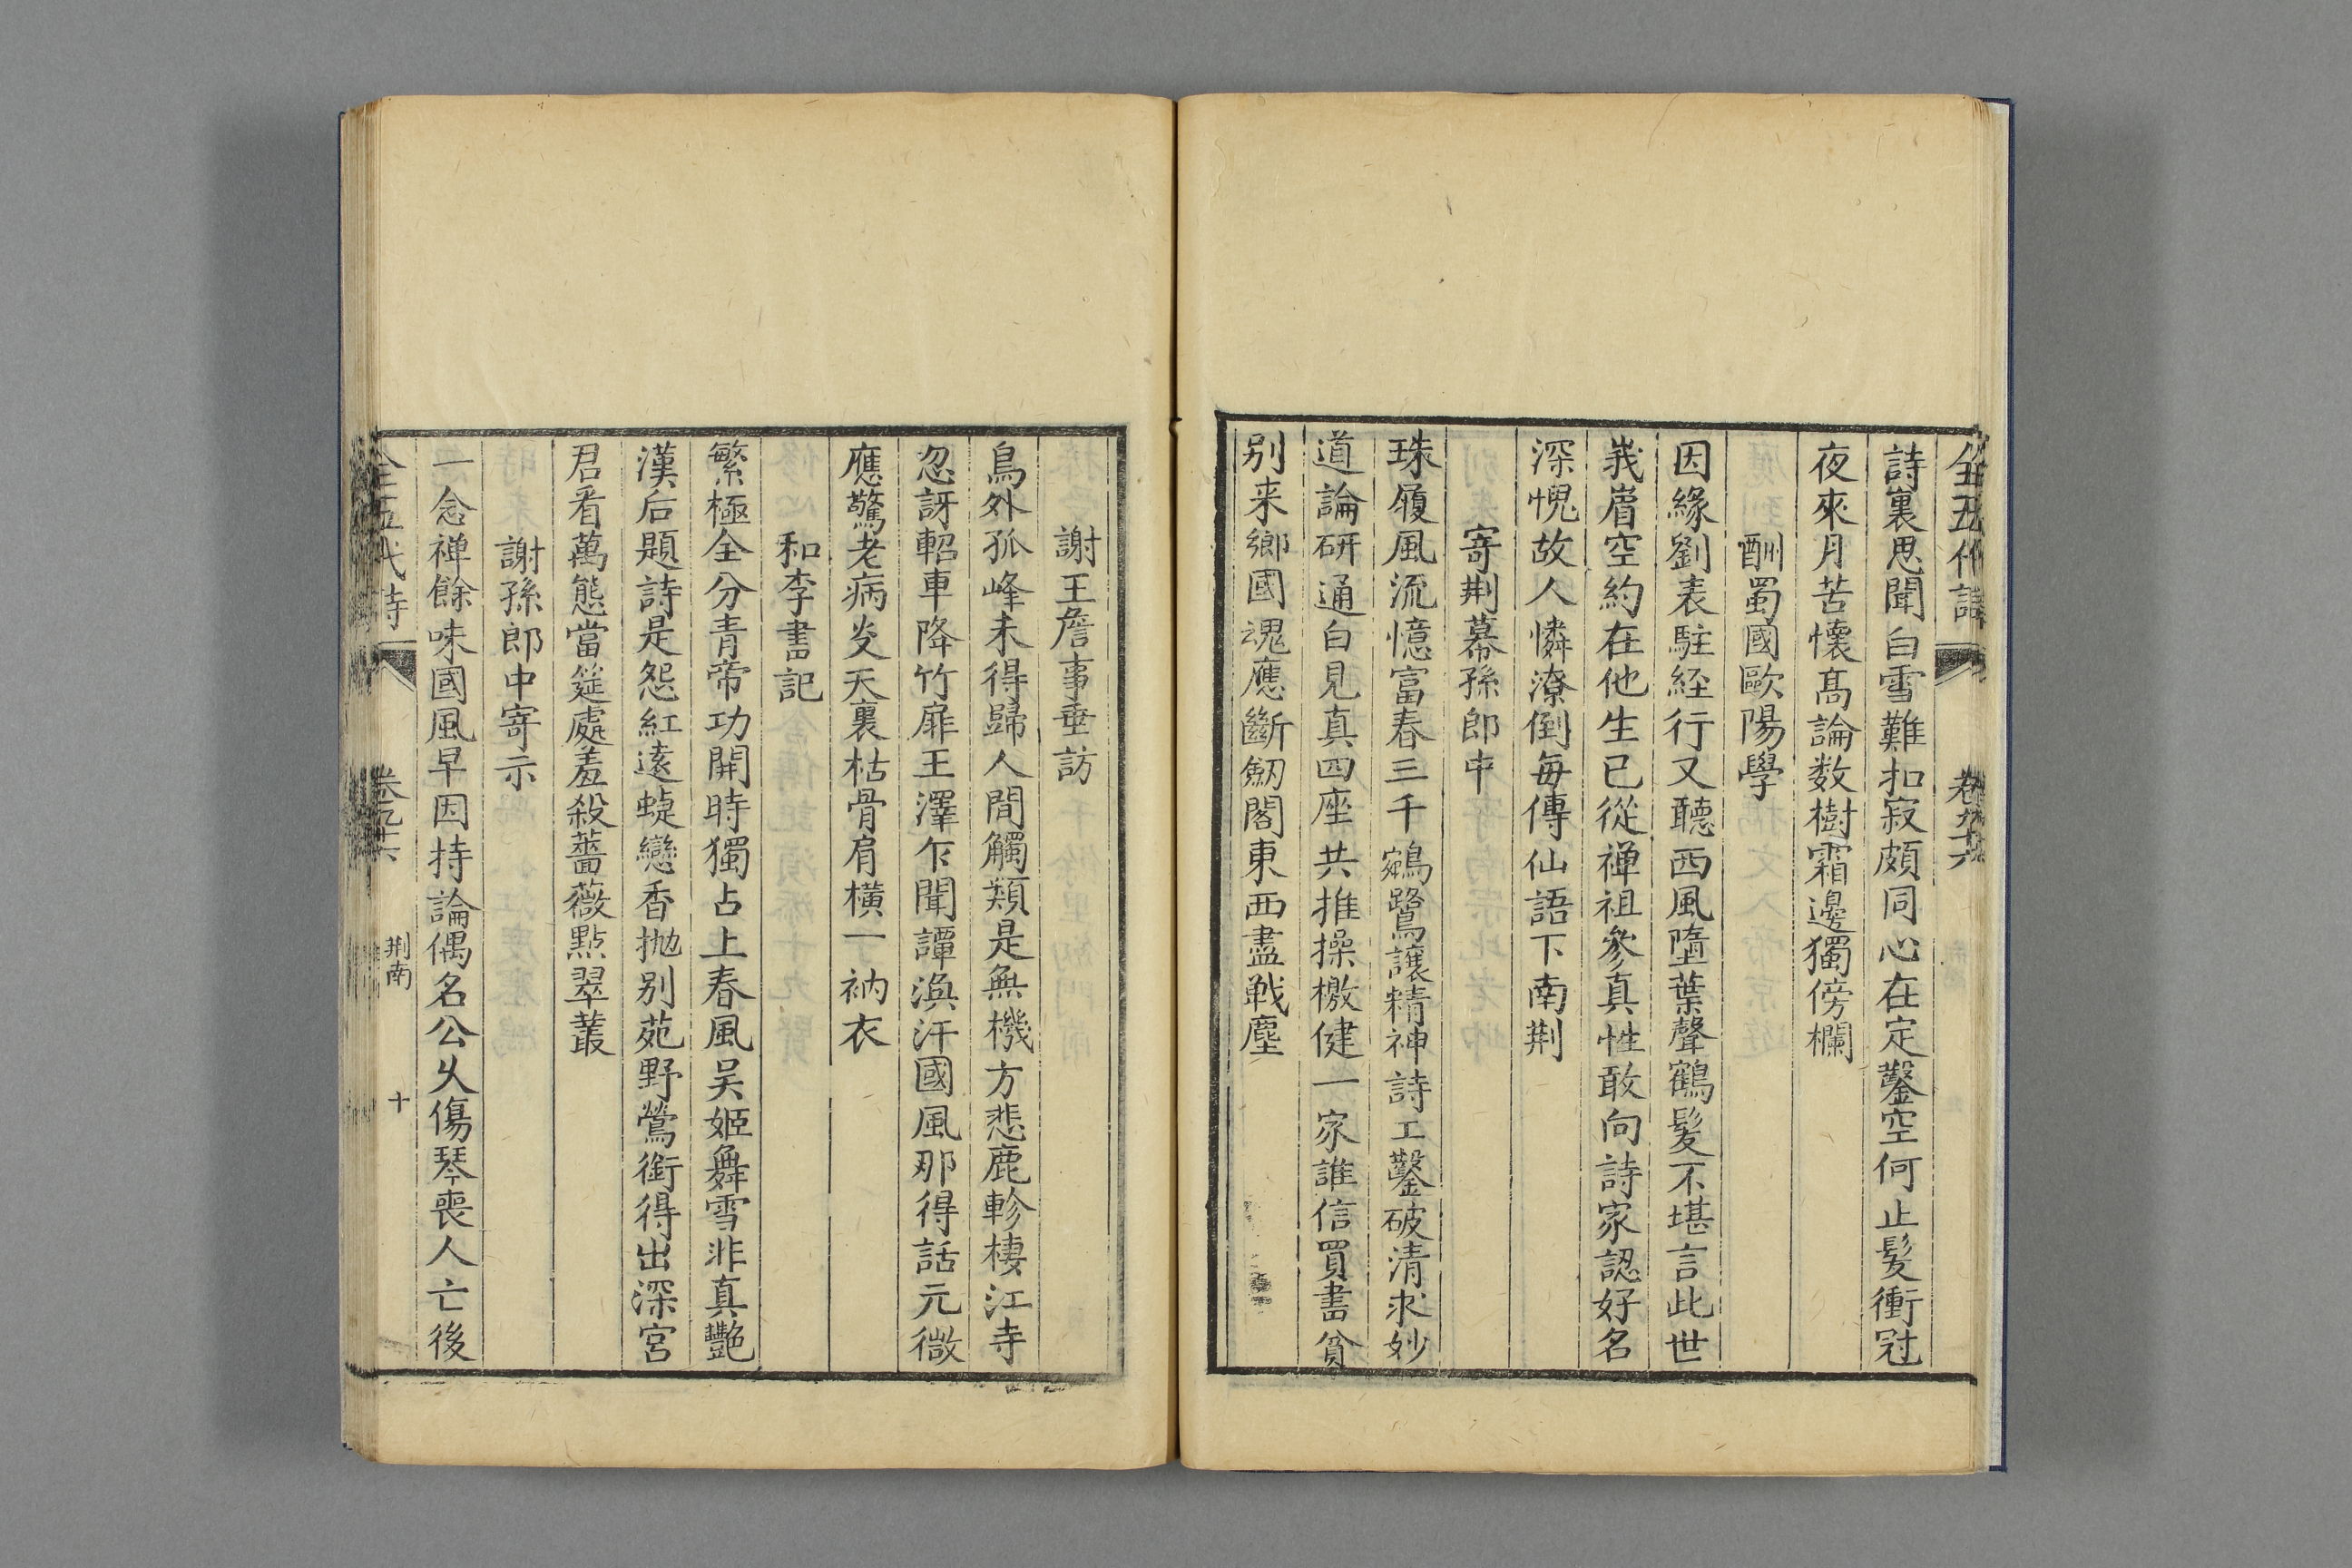 全五代詩 卷九十六
詩裏思聞白雪難扣寂頗同心在定鑿空何止髮衝冠
夜來月苦懷髙論数樹霜邊獨傍欄
酬蜀國歐陽學
因緣劉表駐經行又聽西風墮葉聲鶴髮不堪言此世
峩眉空約在他生已從禅祖參真性敢向詩家認好名
深愧故人憐潦倒每傳仙語下南荆
寄荆幕孫郎中
珠履風流憶富春三千鵷鷺讓精神詩工鑿破清求妙
道論研通白見真四座共推操檄健一家誰信買書貧
别来鄉國魂應斷劒閣東西盡戦塵
謝王詹事垂訪
鳥外孤峰未得歸人間觸類是無機方悲鹿軫棲江寺
忽訝軺車降竹扉王澤乍聞譚渙汗國風那得話元微
應驚老病炎天裏枯骨肩橫一衲衣
和李書記
繁極全分青帝功開時獨占上春風吴姬舞雪非真艷
漢后題詩是怨紅遠蜨戀香抛别苑野鶯銜得出深宮
君看萬態當筵處羞殺薔薇點翠叢
謝孫郎中寄示
一念禅餘味國風早因持論偶名公久傷琴喪人亡後
全五代詩 卷九十六 荆南 十